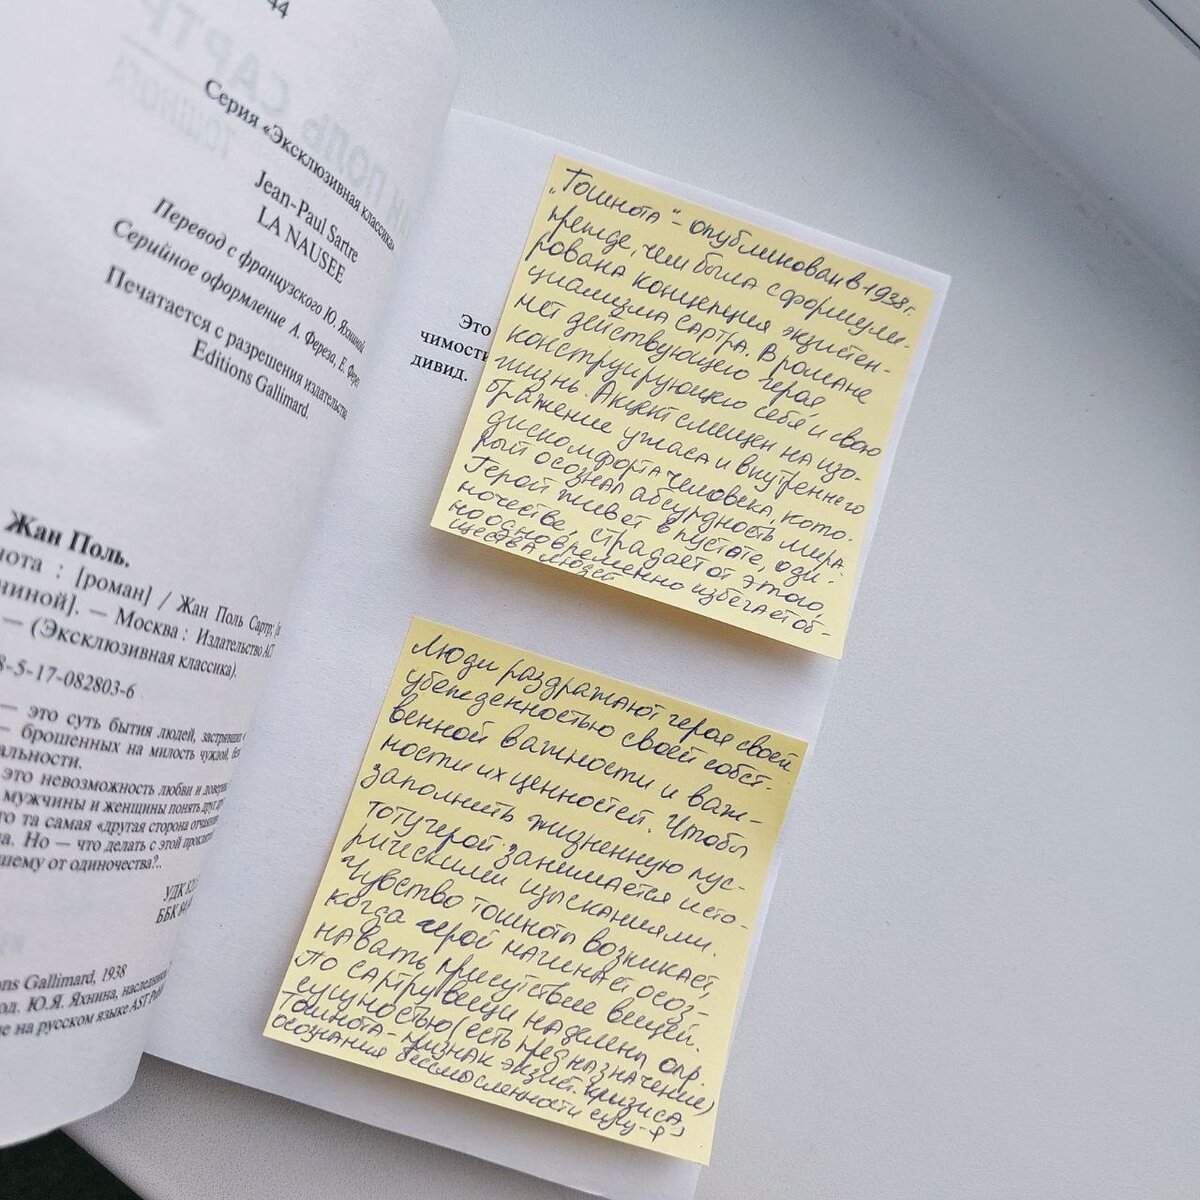 44
Серия «Эксклюзивная классика»
Jean-Paul Sartre
LA NAUSEE
Перевод с французского Ю. Яхниной
Серийное оформление А. Фереза, Е. Ферез
Печатается с разрешения издательства
Editions Gallimard.
Жан Поль.
нота : [роман] / Жан Поль Сартр;
ниной]. — Москва : Издательство АСТ
— (Эксклюзивная классика).
8-5-17-082803-6
— это суть бытия людей, застрявших
— брошенных на милость чуждой,
альности.
это невозможность любви и
мужчины и женщины понять друг
то та самая «другая сторона отчаяния
а. Но — что делать с этой
шему от одиночества?..
УДК
ББК
ns Gallimard, 1938
од. Ю.Я. Яхнина, наследники
е на русском языке AST
Это
чимости
дивид.
„Тошнота“ - опубликован в 1938г.
прежде, чем была сформули-
рована концепция экзистен-
циализма Сартра. В романе
нет действующего героя,
конструирующего себя и свою
жизнь. Акцент смещен на изо-
бражение ужаса и внутреннего
дискомфорта человека, кото-
рый осознал абсурдность мира.
Герой живет в пустоте, оди-
ночестве, страдает от этого,
но одновременно избегает об-
щества людей
Люди раздражают героя своей
убежденностью своей собст-
венной важности и важ-
ности их ценностей. Чтобы
заполнить жизненную пус-
тоту герой занимается исто-
рическими изысканиями.
Чувство тошноты возникает,
когда герой начинает осоз-
навать присутствие вещей.
По Сартру вещи наделены опр.
сущностью (есть предназначение)
Тошнота - признак экзист. кризиса,
осознания бессмысленности сущ-я